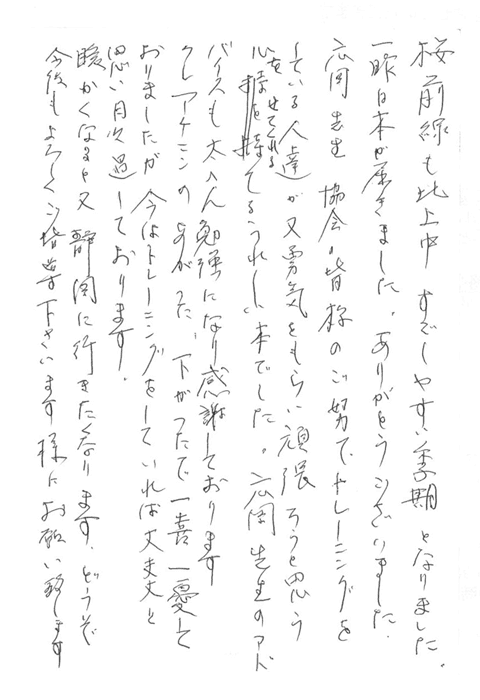 桜前線も北上中 すごしやすい季期となりました。
一昨日本が届きました。ありがとうございました。
広岡先生 協会の皆様のご努力で、トレーニングを
している人達が又勇気をもらい頑張ろうと思う
心を持たせてくれる
うれしい本でした。広岡先生のアド
バイスも大へん勉強になり感謝しております
クレアチニンの 上がった、下がったで一喜一憂して
おりましたが 今はトレーニングをしていれば大丈夫と
思い日々過しております。
暖かくなると又 静岡に行きたくなります、どうぞ
今後もよろしくご指導下さいます様にお願い致します